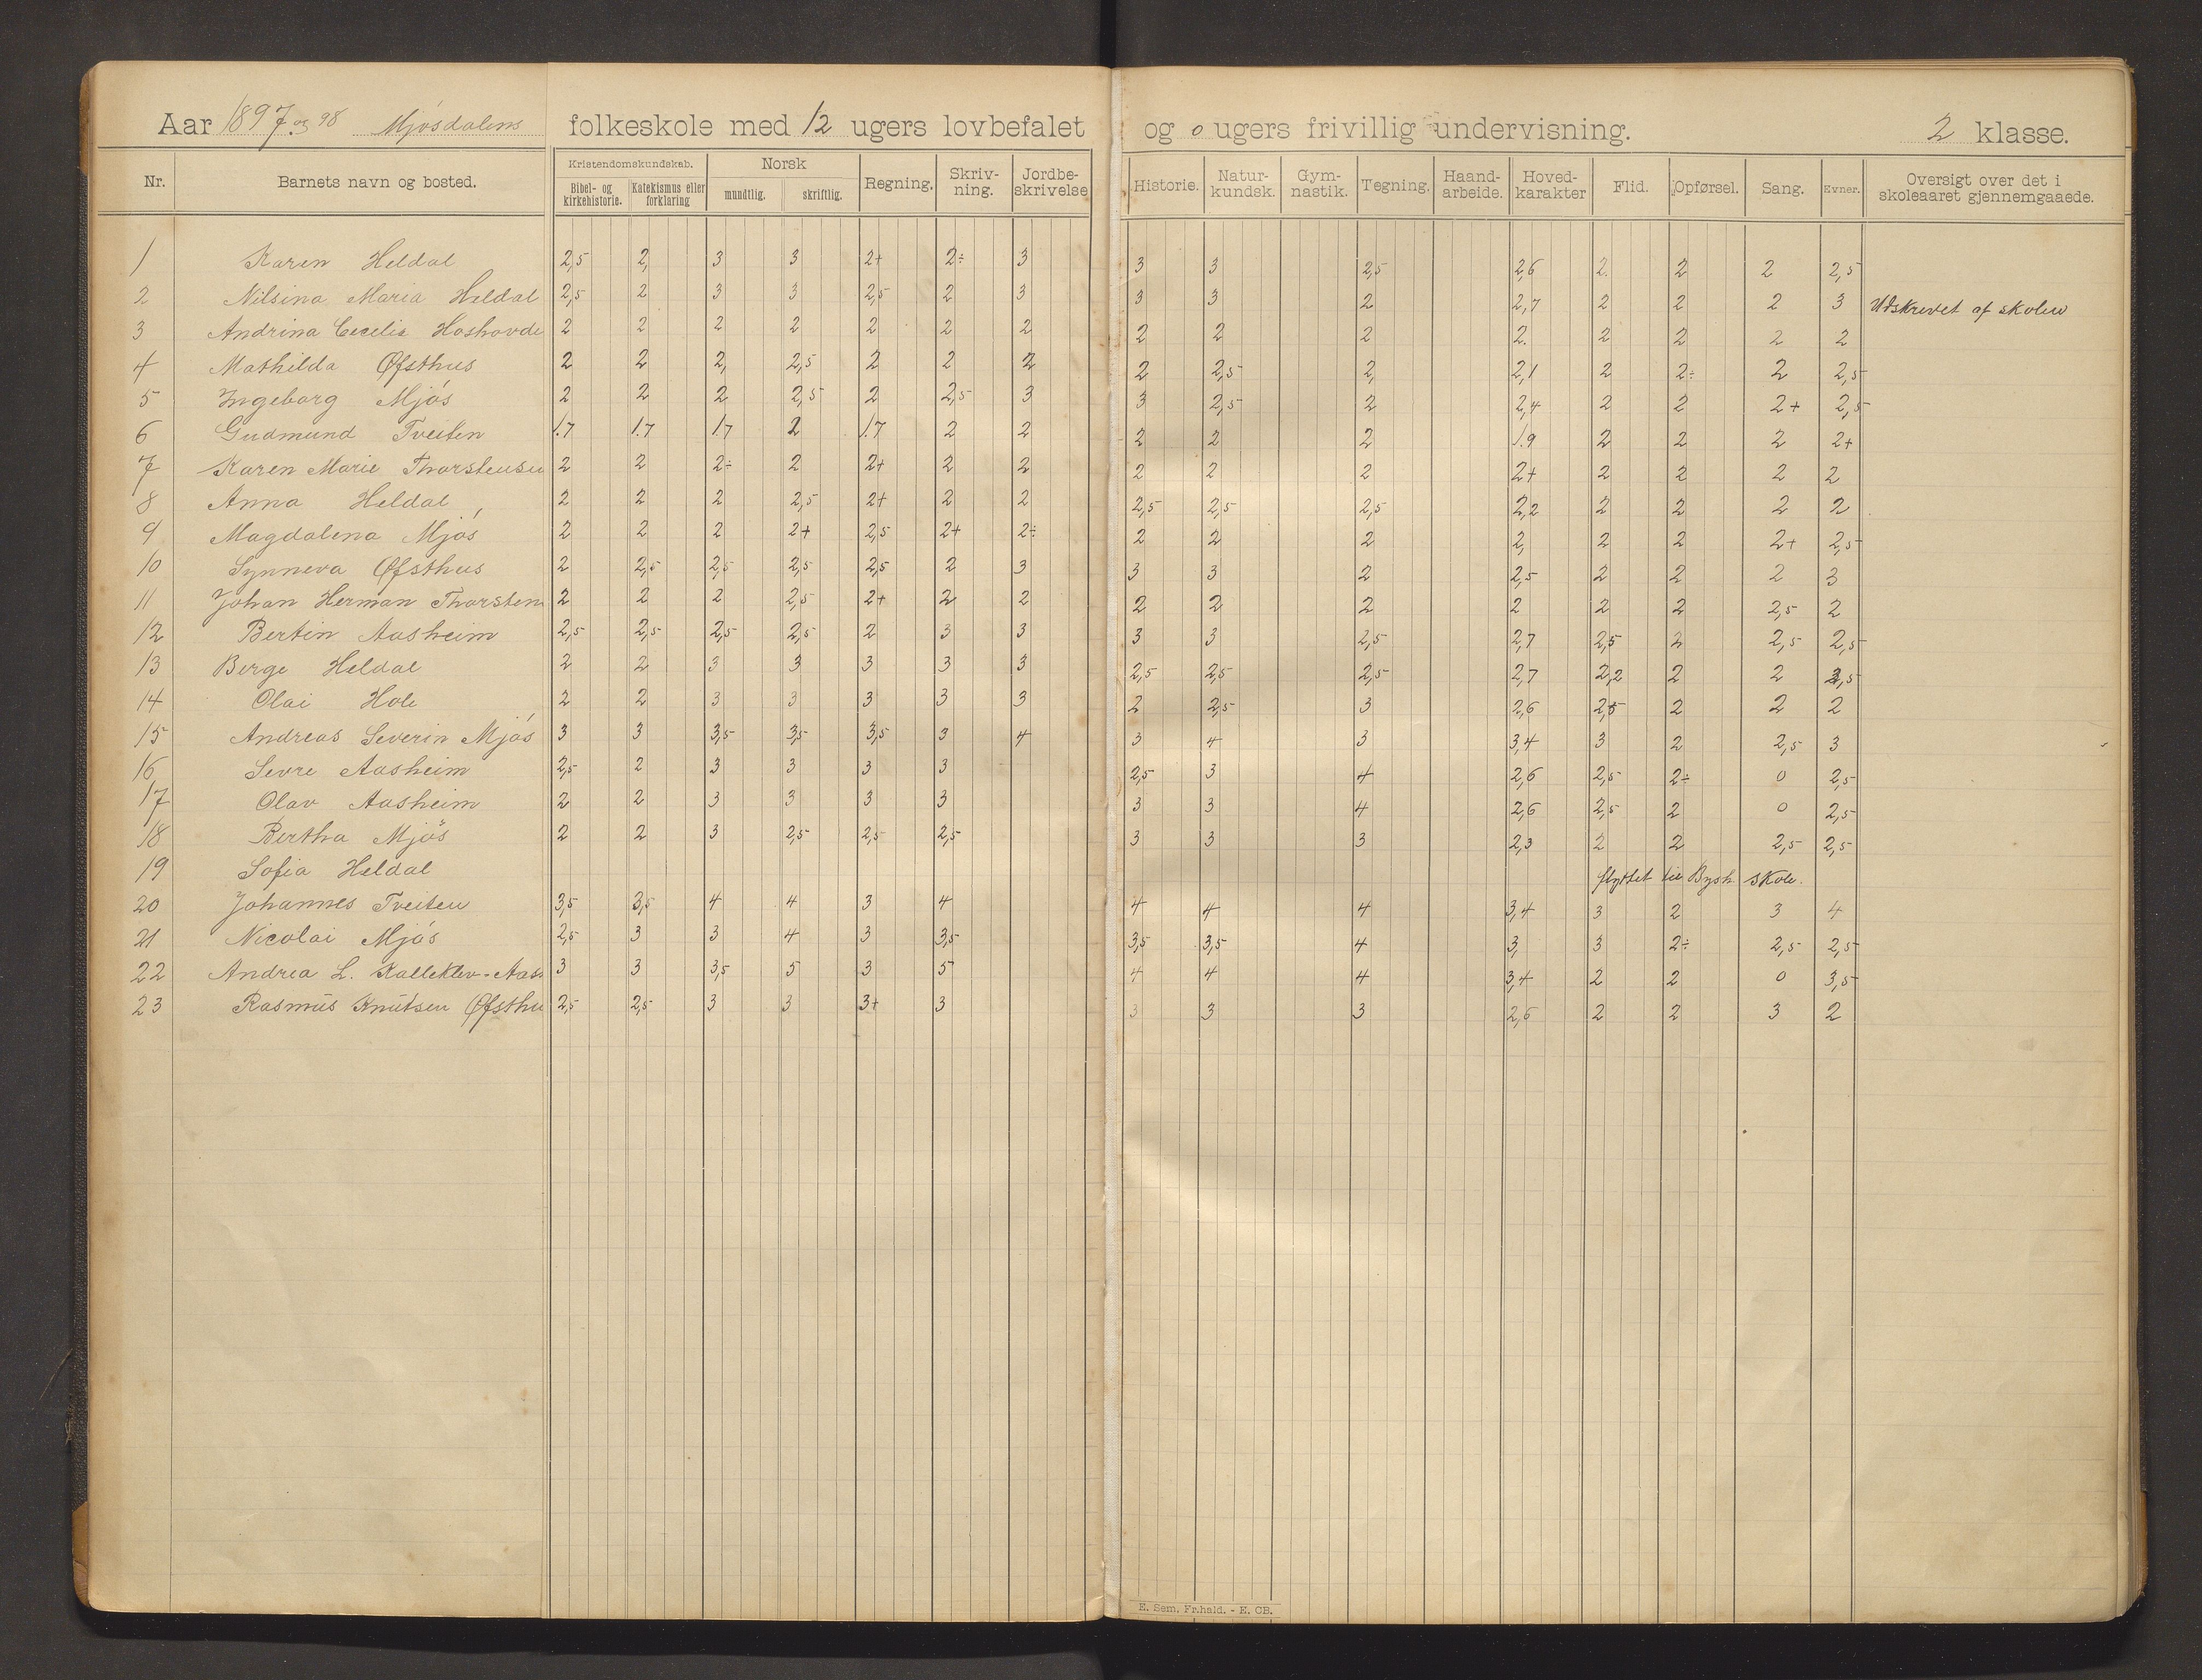 Aar 1897 og 98 Mjösdalens folkeskole med 12 ugers lovbefalet og 0 ugers frivillig undervisning. 2 klasse.
Nr. Barnets navn og bosted. Kristendomskundskab. Bibel- og kirkehistorie. Katekismus eller forklaring Norsk mundtlig. skriftlig. Regning. Skriv-ning. Jordbe-skrivelse Historie. Natur-kundsk. Gym-nastik. Tegning. Haand-arbeide. Hoved-karakter Flid. Opførsel. Sang. Evner. Oversigt over det i skoleaaret gjennemgaaede.
1 Karen Heldal 2,5 2, 3 3 2+ 2÷ 3 3 3 2,5 2,6 2. 2 2 2,5
2 Nilsina Maria Heldal 2,5 2 3 3 2,5 2 3 3 3 2 2,7 2 2 2 3 Udskrevet af skolen
3 Andrina Cecelia Hoshovde 2 2 2 2 2 2 2 2 2 2 2. 2 2 2 2
4 Mathilda Øfsthus 2 2 2, 2,5 2 2 2 2 2,5 2, 2,1 2 2÷ 2 2,5
5 Ingeborg Mjós 2 2 2 2,5 2 2,5 3 3 2,5 2 2,4 2 2 2+ 2,5
6 Gudmund Tveiten 1.7 1.7 1.7 2 1.7 2 2 2 2 2 1.9 2 2 2 2+
7 Karen Marie Thorstensen 2 2 2÷ 2 2+ 2 2 2 2 2 2+ 2 2 2 2
8 Anna Heldal 2 2 2 2,5 2+ 2 2 2,5 2,5 2,5 2,2 2 2 2 2
9 Magdalena Mjós 2 2 2 2+ 2,5 2+ 2÷ 2 2 2 2, 2 2 2+ 2,5
10 Synneva Øfsthus 2 2,5 2,5 2,5 2,5 2 3 3 3 2 2,5 2 2 2 3
11 Johan Herman Thorsten 2 2 2 2,5 2+ 2 2 2 2 2 2 2 2 2,5 2
12 Bertin Aasheim 2,5 2,5 2,5 2,5 2 3 3 3 3 2,5 2,7 2,5 2 2,5 2,5
13 Berge Heldal 2 2 3 3 3 3 3 2,5 2,5 2,5 2,7 2,2 2 2 2,5
14 Olai Hole 2 2 3 3 3 3 3 2 2,5 3 2,6 2,5 2 2 2
15 Andreas Severin Mjós 3 3 3,5 3,5 3,5 3 4 3 4 3 3,4 3 2 2,5 3
16 Sevre Aasheim 2,5 2 3 3 3 3 2,5 3 4 2,6 2,5 2÷ 0 2,5
17 Olav Aasheim 2 2 3 3 3 3 3 3 4 2,6 2,5 2 0 2,5
18 Bertha Mjös 2 2 3 2,5 2,5 2,5 3 3 3 2,3 2 2 2,5 2,5
19 Sofia Heldal flyttet til Bysh. skole.
20 Johannes Tveiten 3,5 3,5 4 4 3 4 4 4 4 3,4 3 2 3 4
21 Nicolai Mjós 2,5 3 3 4 3 3,5 3,5 3,5 4 3, 3 2÷ 2,5 2,5
22 Andrea L. Kalleklev-Aas 3 3 3,5 5 3 5 4 4 4 3,4 2 2 0 3,5
23 Rasmus Knutsen Øfsthu 2,5 2,5 3 3 3+ 3 3 3 3 2,6 2 2 3 2
E. Sem, Fr.hald. - E. CB.